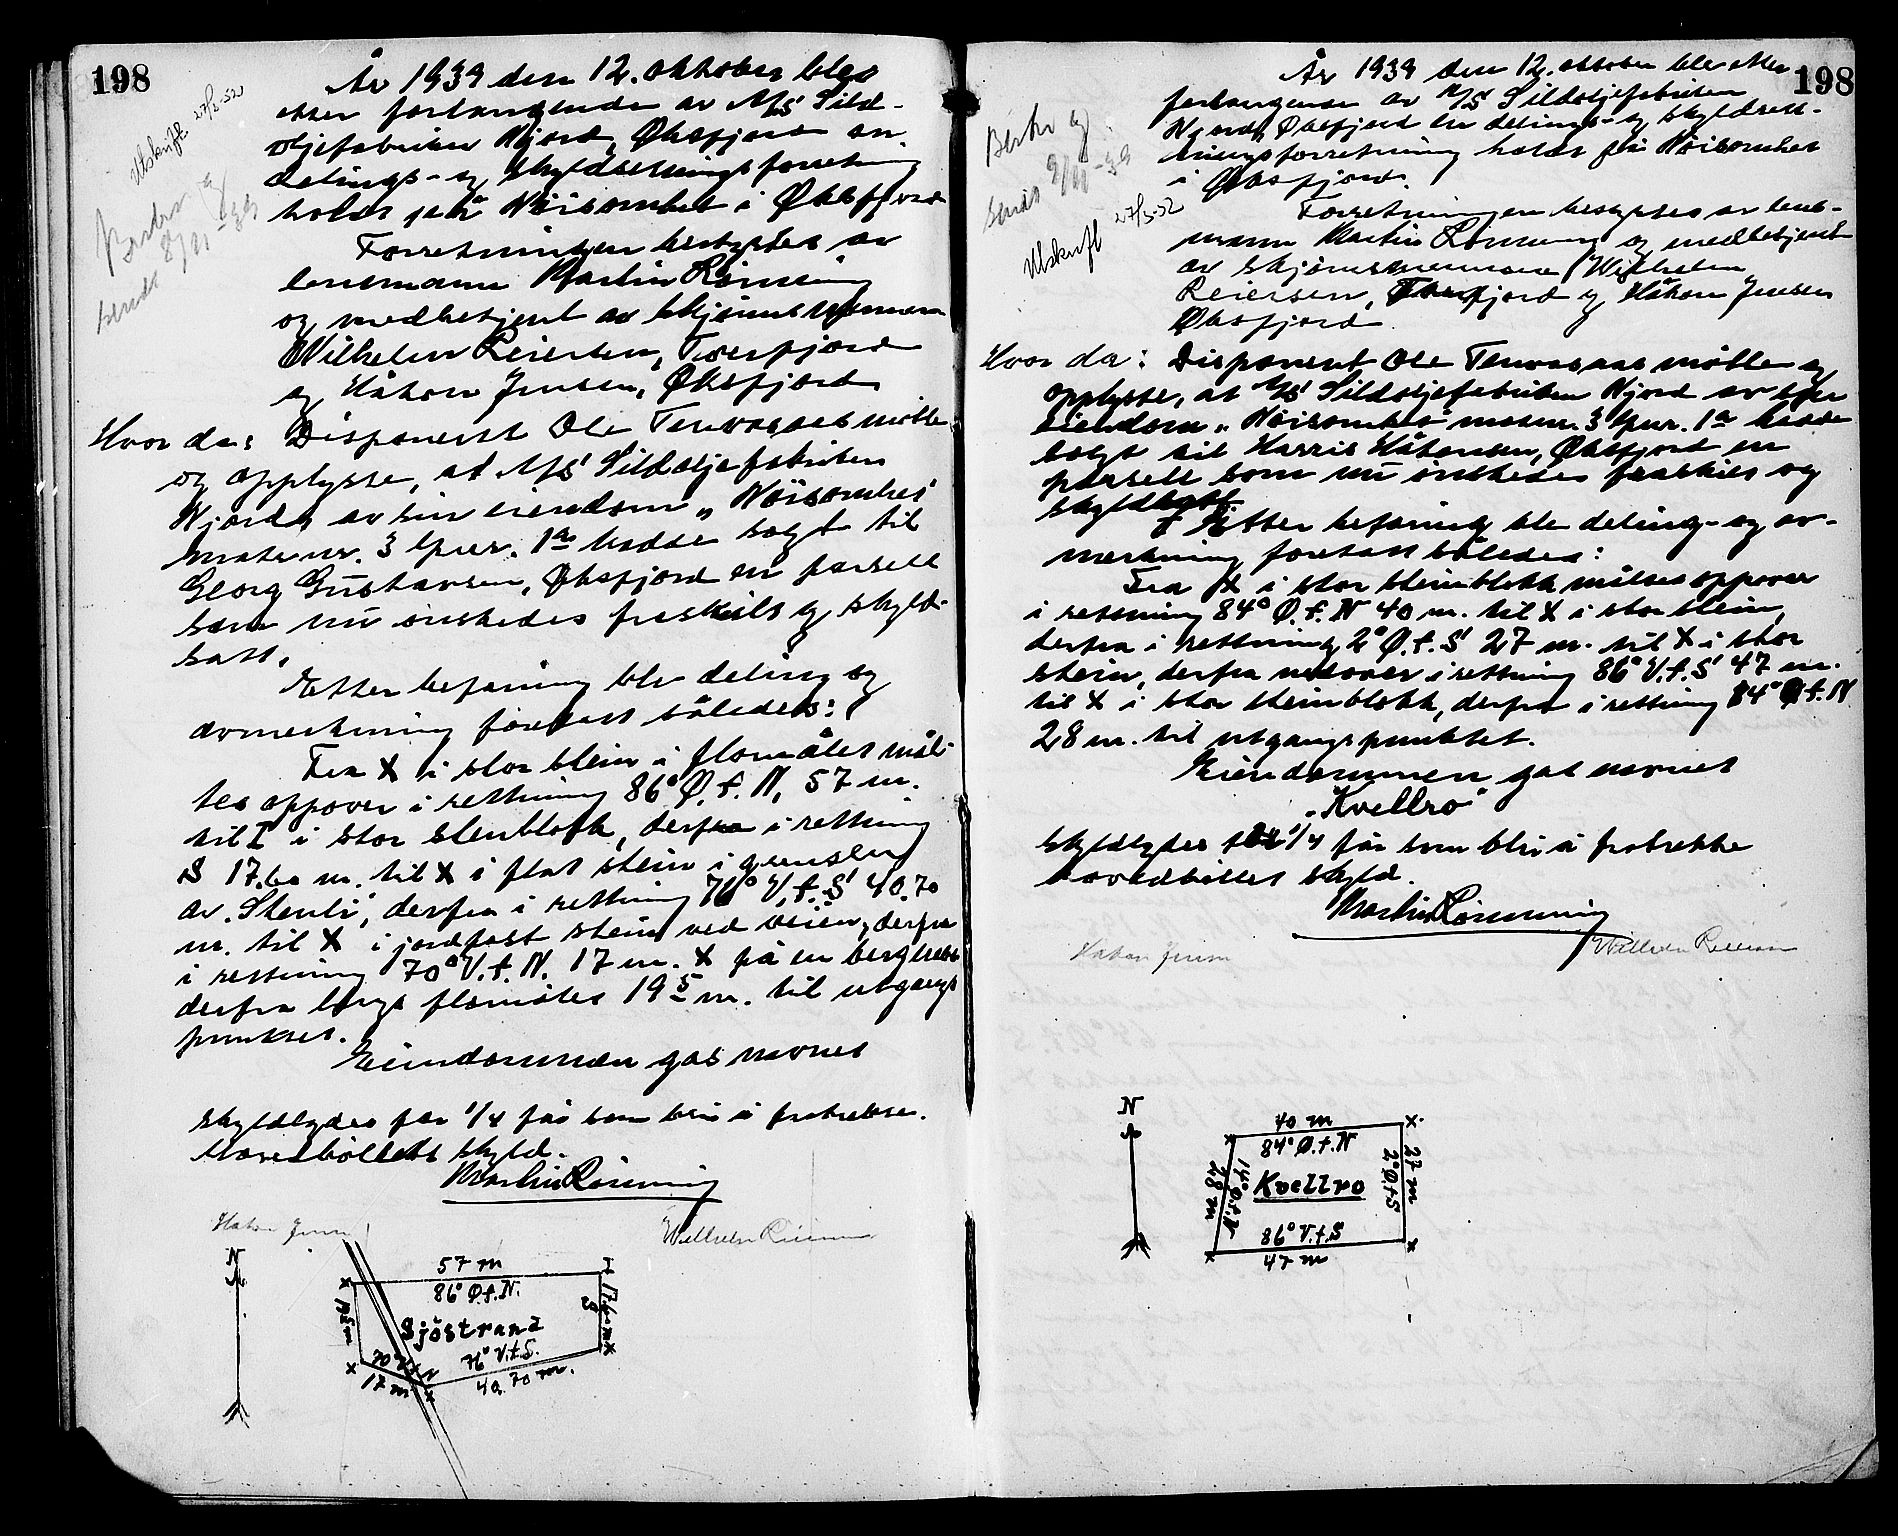 198
Utskrift 27/3-52
År 1939 den 12. oktober blev
etter forlangende av A/S Sild-
oljefabriken Njord, Øksfjord en
delings- og skyldsetningsforretning
holdt på Nöisomhet i Øksfjord
Forretningen bestyrtes av
lensmann Martin Rönning
og medbetjent av skjönnsmennene
Wilhelm Reiersen, Tverfjord
og Håkon Jensen, Øksfjord
Hvor da: Disponent Ole Tenvasaas mötte
og opplyste, at A/S Sildoljefabriken
Njord, av sin eiendom „Nöisomhet"
matr. nr. 3 lpnr. 1a hadde solgt til
Georg Gustavsen, Øksfjord en parsell
som nu önskedes fraskilt og skyld-
satt.
Etter befaring ble deling og
avmerkning foretatt således:
Fra X i stor stein i flomålet mål-
tes oppover i rettning 86° Ø.f.N. 57 m.
til I i stor stenblokk, derfra i rettning
S 17.60 m. til X i flat stein i grensen
av „Stenli", derfra i rettning 76° V.f.S 40.70
m. til X i jordfast stein ved veien, derfra
i rettning 70° V.f.N. 17 m. X på en
derfra langs flomålet 19 5 m. til utgangs
punktet.
Eiendommen gas navnet
Skyldlydes for 1/4 før som blir å fratrekke
Hovedbøllets skyld.
Martin Rönning
Håkon Jensen
Wilhelm Reiersen
N
57 m
86° Ø.f.N.
17.60 m
S
19.5 m
Sjöstrand
76° V.f.S.
40.70 m.
70° V.f.N
17 m
198
27/3-52
Utskrift
År 1939 den 12. oktober ble etter
forlangende av A/S Sildoljefabriken
Njord, Øksfjord en delings- og skyldsett-
ningsforretning holdt på Nöisomhet
i Øksfjord.
Forretningen bestyrtes av lens-
mann Martin Rönning og medbetjent
av skjönnsmennene Wilhelm
Reiersen, Tverfjord og Håkon Jensen
Øksfjord.
Hvor da: Disponent Ole Tenvasaas mötte og
opplyste, at A/S Sildoljefabriken Njord av sin
eiendom „Nöisomhet" matr. nr. 3 lpnr. 1a hadde
solgt til Harris Håkonsen, Øksfjord en
parsell som nu önskedes fraskilt og
skyldsatt.
Etter befaring ble deling- og av-
merkning foretatt således:
Fra X i stor steinblokk måltes oppover
i rettning 84° Ø.f.N 40 m. til X i stor stein,
derfra i rettning 2° Ø.f.S 27 m. til X i stor
stein, derfra nedover i rettning 86° V.f.S 47 m.
til X i stor steinblokk, derfra i rettning 84° Ø.f.N
28 m. til utgangspunktet.
Eiendommen gas navnet
„Kvellro"
Skyldlydes for 1/4 før som blir å fratrekke
hovedbøllets skyld.
Martin Rönning
Håkon Jensen
Wilhelm Reiersen
N
40 m
84° Ø.f.N
27 m
2° Ø.f.S
14° Ø.f.N
28 m
Kvellro
86° V.f.S
47 m